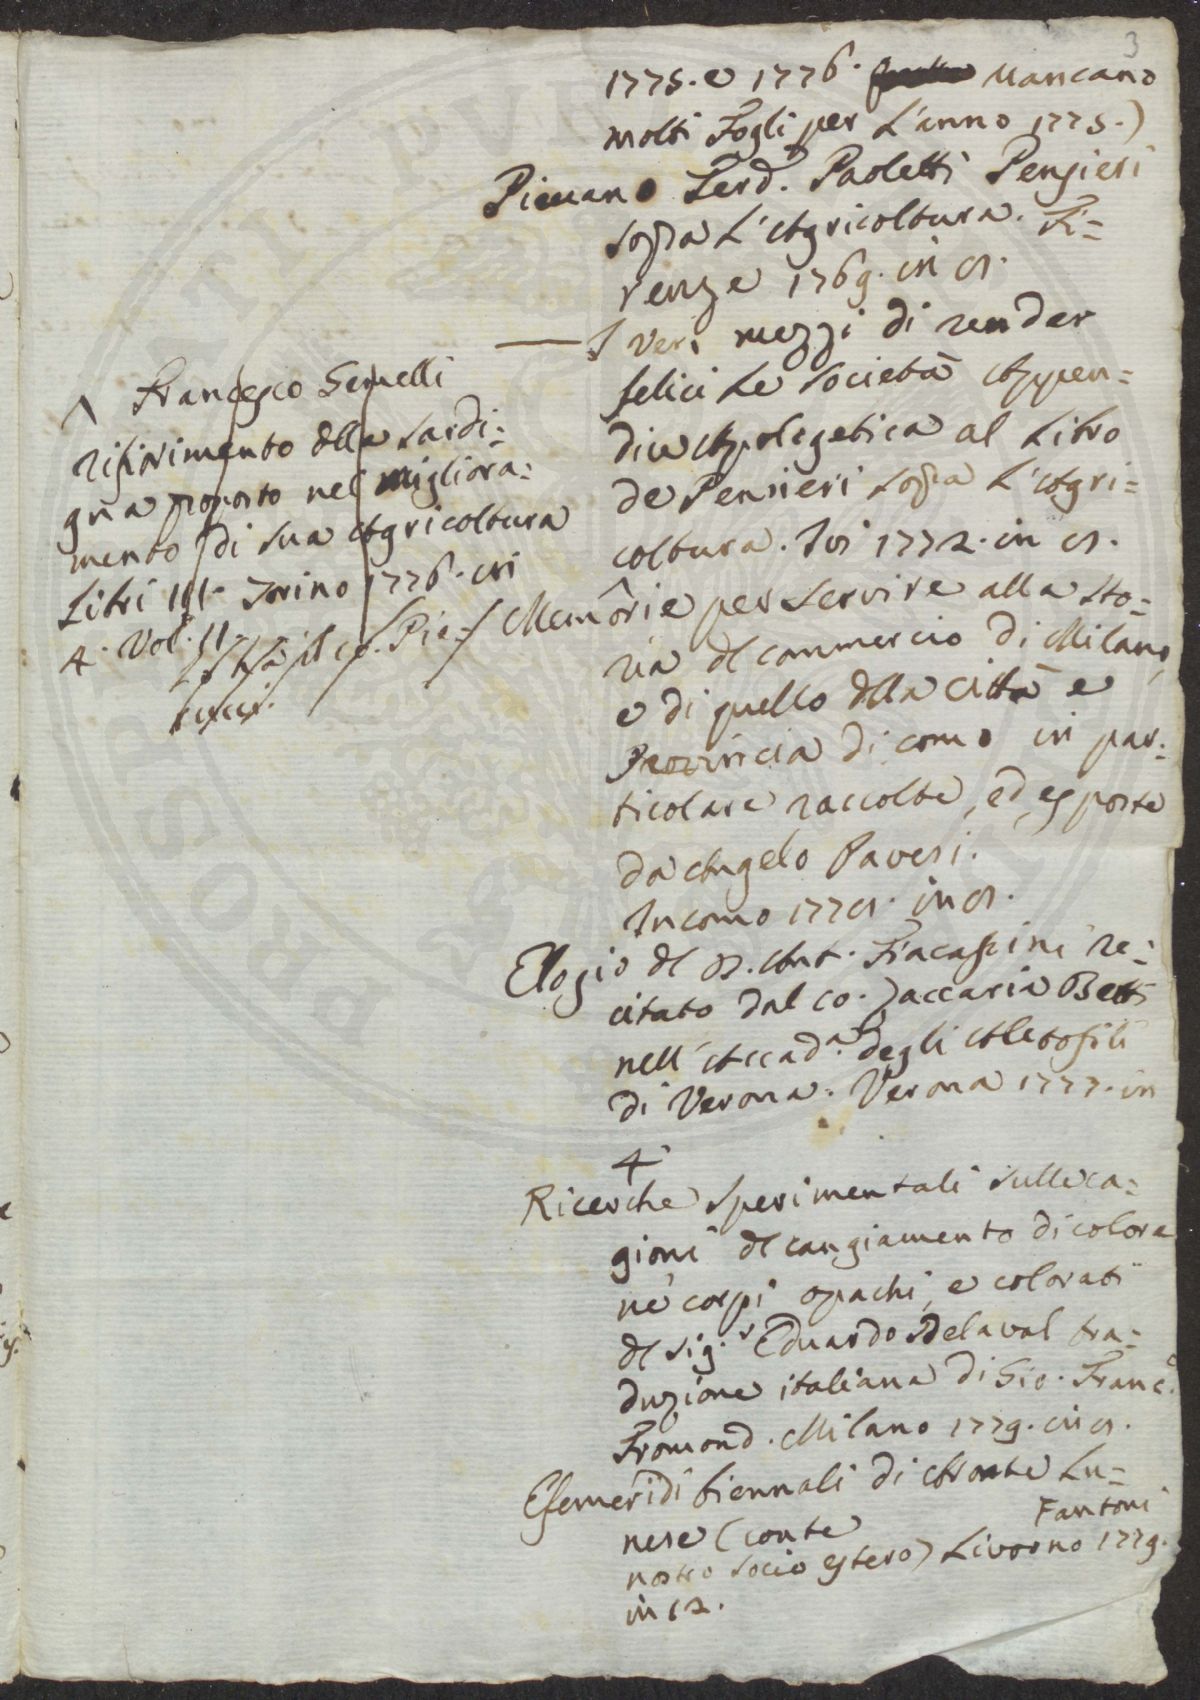 3
1775. e 1776. Mancano
molti Fogli per L'anno 1775.)
Pievano Ferd. Paoletti Pensieri
sopra L'Agricoltura. Fi=
renze 1769. in 8.
— I veri mezzi di render
felici Le società Appen=
dice Apologetica al Libro
de Pensieri sopra L'Agri=
coltura. Ivi 1772. in 8.
^ Francesco Gemelli
rifiorimento della Sardi=
gna proposto nel migliora=
mento di sua Agricoltura
Libri III. Torino 1776. in
4. Vol. II.
L'ha il co. Pic=
Memorie per servire alla Sto=
ria del commercio di Milano,
e di quello della città e
Provincia di como in par=
ticolare raccolte, ed esposte
da Angelo Pavesi.
In como 1778. in 8.
Elogio del D. Ant. Fracassini re=
citato dal co. Zaccaria Betti
nell'Accad.a degli Aletofili
di Verona. Verona 1777. in
4
Ricerche sperimentali sulle ca=
gioni del cangiamento di colore
ne' corpi opachi, e colorati
del sig.r Eduardo Delaval tra=
duzione italiana di Gio. Franc.o
Fromond. Milano 1779. in 8.
Efemeridi biennali di Aronte Lu=
nese (conte Fantoni
nostro socio estero) Livorno 1779.
in 12.